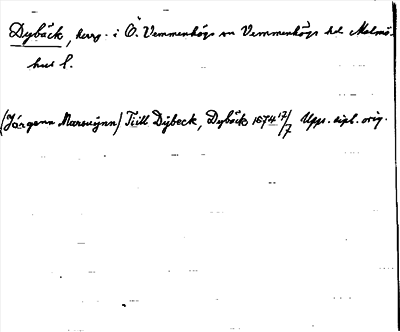 Dybäck, herrg. i Ö. Vemmenhögs sn Vemmenhögs hd Malmö-
hus l.
(Jörgenn Marswijnn) Tiill Dijbeck, Dybäck 1574 17/7 Upps. dipl. orig.